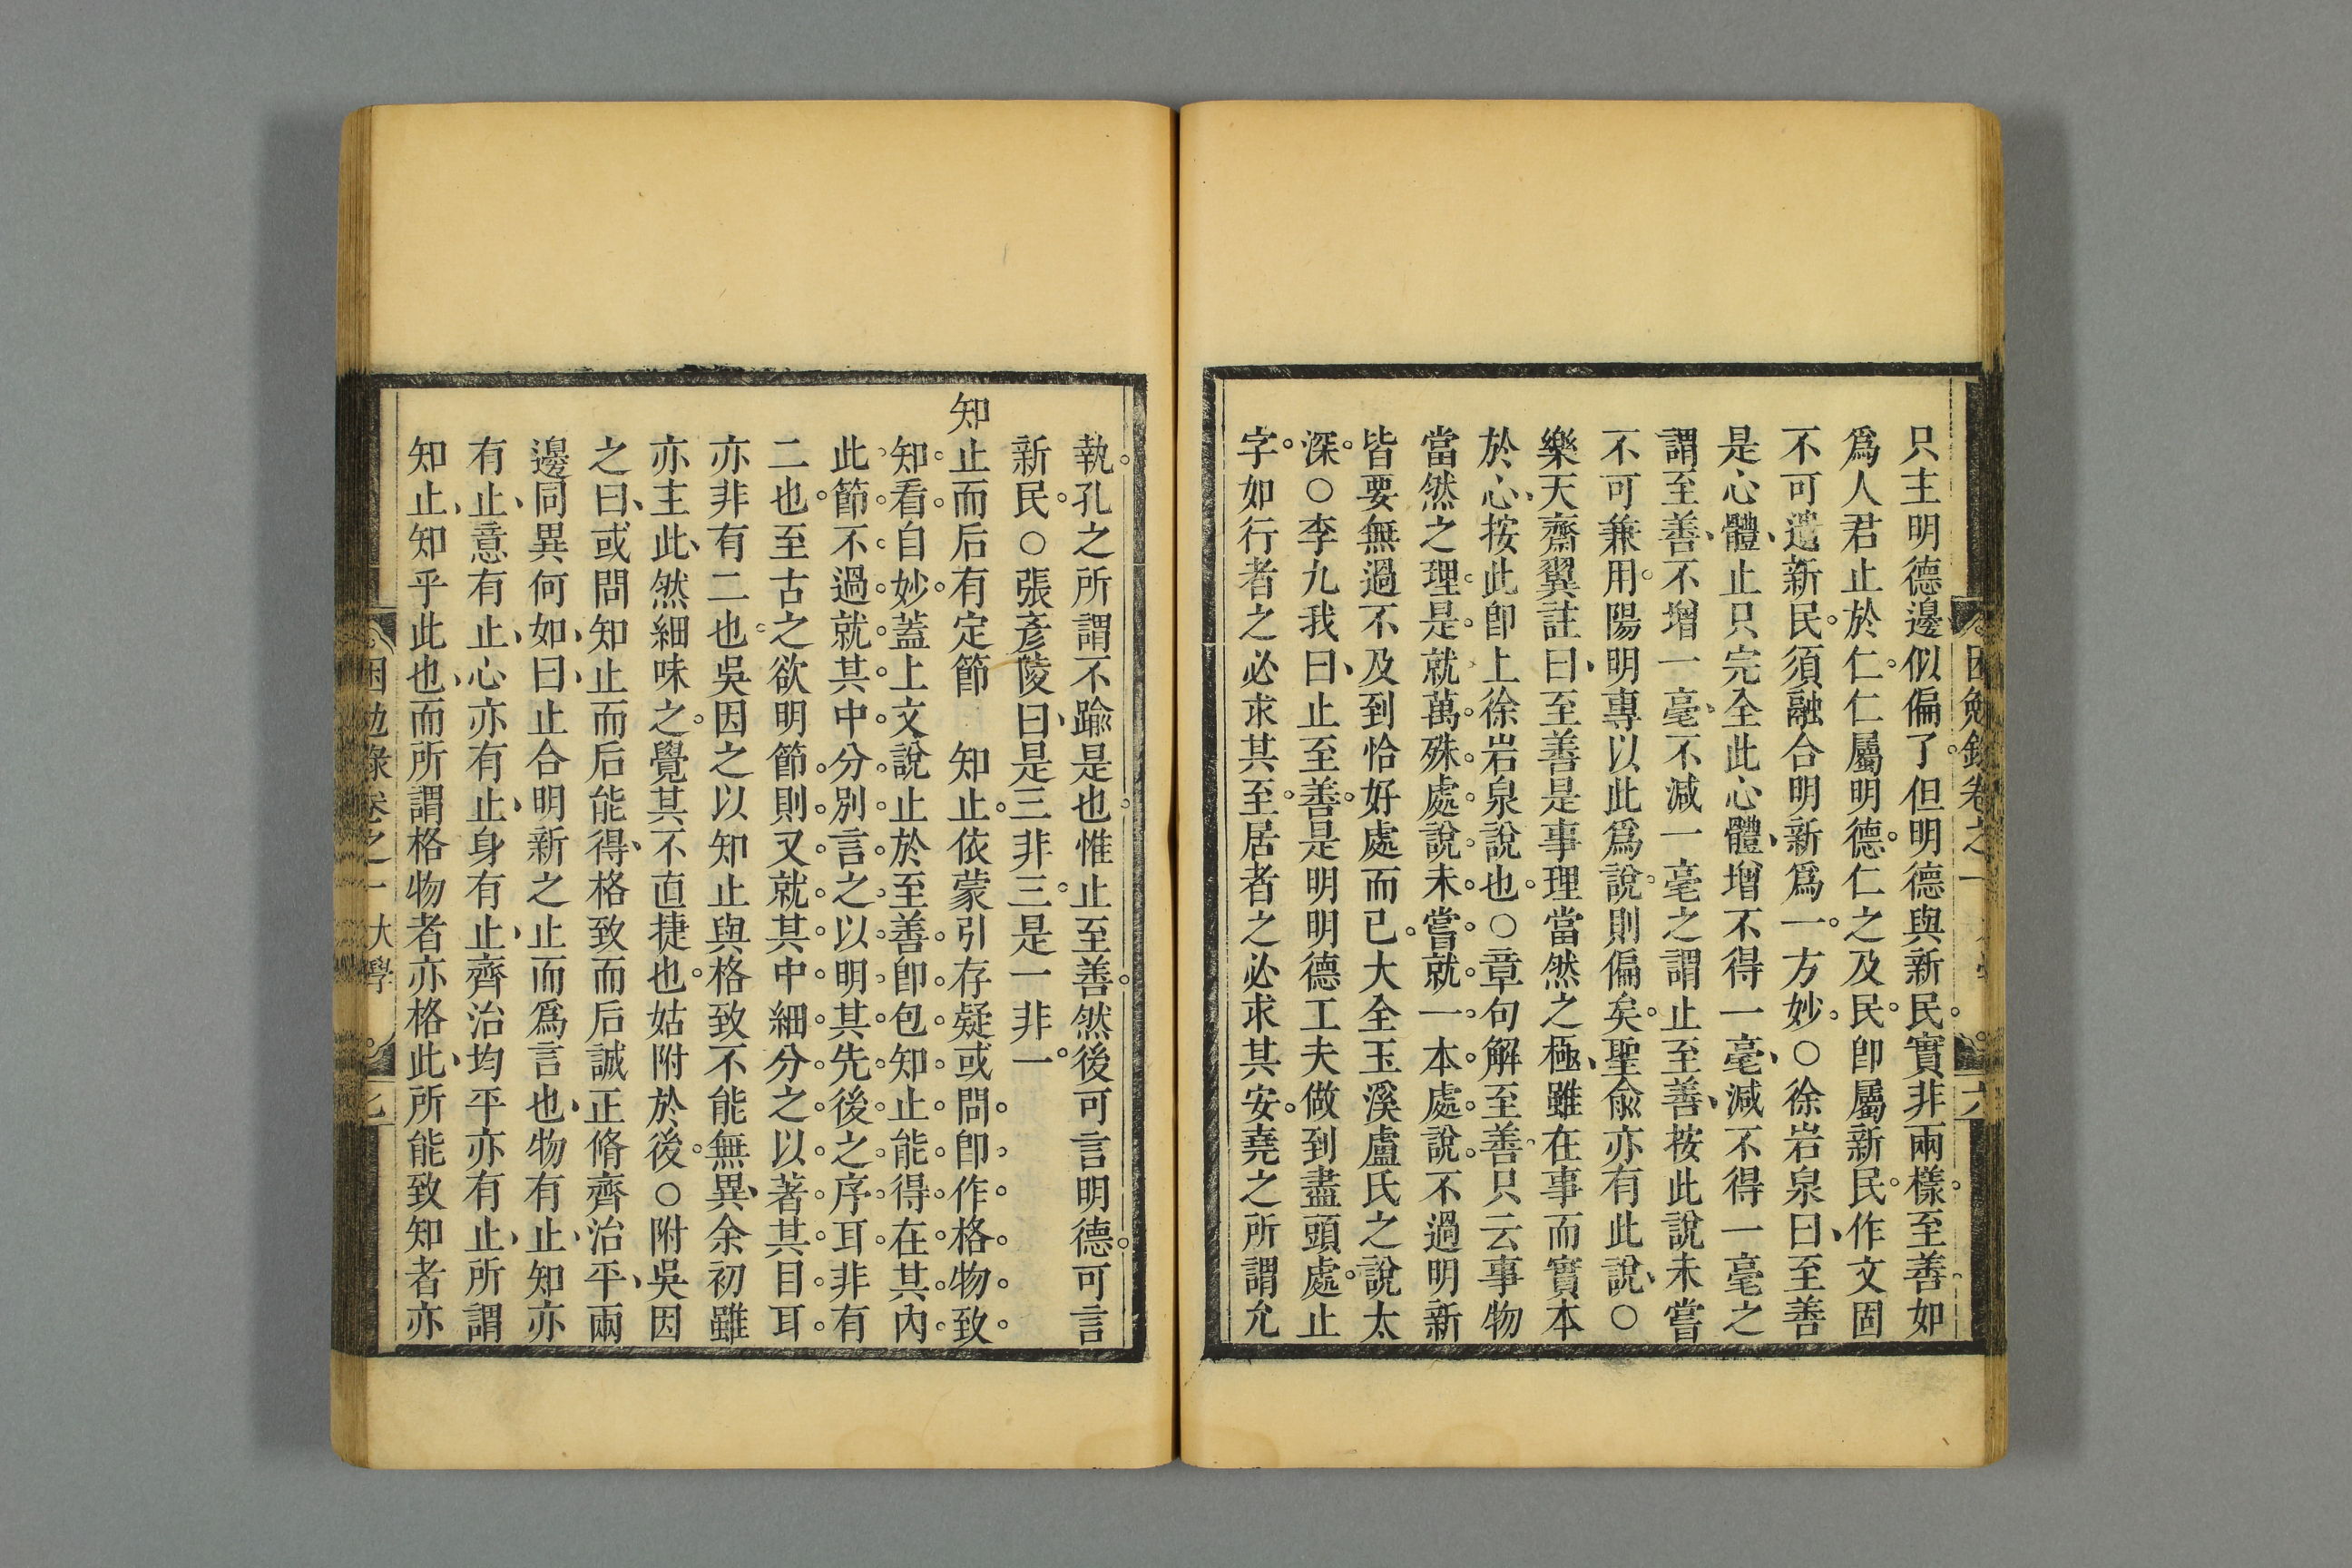 只主明德邊似偏了但明德與新民實非兩樣至善如
爲人君止於仁仁屬明德仁之及民卽屬新民作文固
不可遺新民須融合明新爲一方妙○徐岩泉曰至善
是心體止只完全此心體增不得一毫減不得一毫之
謂至善不增一毫不減一毫之謂止至善按此說未嘗
不可兼用陽明專以此爲說則偏矣聖俞亦有此說○
樂天齋翼註曰至善是事理當然之極雖在事而實本
於心按此卽上徐岩泉說也○章句解至善只云事物
當然之理是就萬殊處說未嘗就一本處說不過明新
皆要無過不及到恰好處而已大全玉溪盧氏之說太
深○李九我曰止至善是明明德工夫做到盡頭處止
字如行者之必求其至居者之必求其安堯之所謂允
執孔之所謂不踰是也惟止至善然後可言明德可言
新民○張彥陵曰是三非三是一非一
知止而后有定節　知止依蒙引存疑或問卽作格物致
知看自妙蓋上文說止於至善卽包知止能得在其內
此節不過就其中分別言之以明其先後之序耳非有
二也至古之欲明節則又就其中細分之以著其目耳
亦非有二也吳因之以知止與格致不能無異余初雖
亦主此然細味之覺其不直捷也姑附於後○附吳因
之曰或問知止而后能得格致而后誠正脩齊治平兩
邊同異何如曰止合明新之止而爲言也物有止知亦
有止意有止心亦有止身有止齊治均平亦有止所謂
知止知乎此也而所謂格物者亦格此所能致知者亦
困勉錄卷之一 大學 七